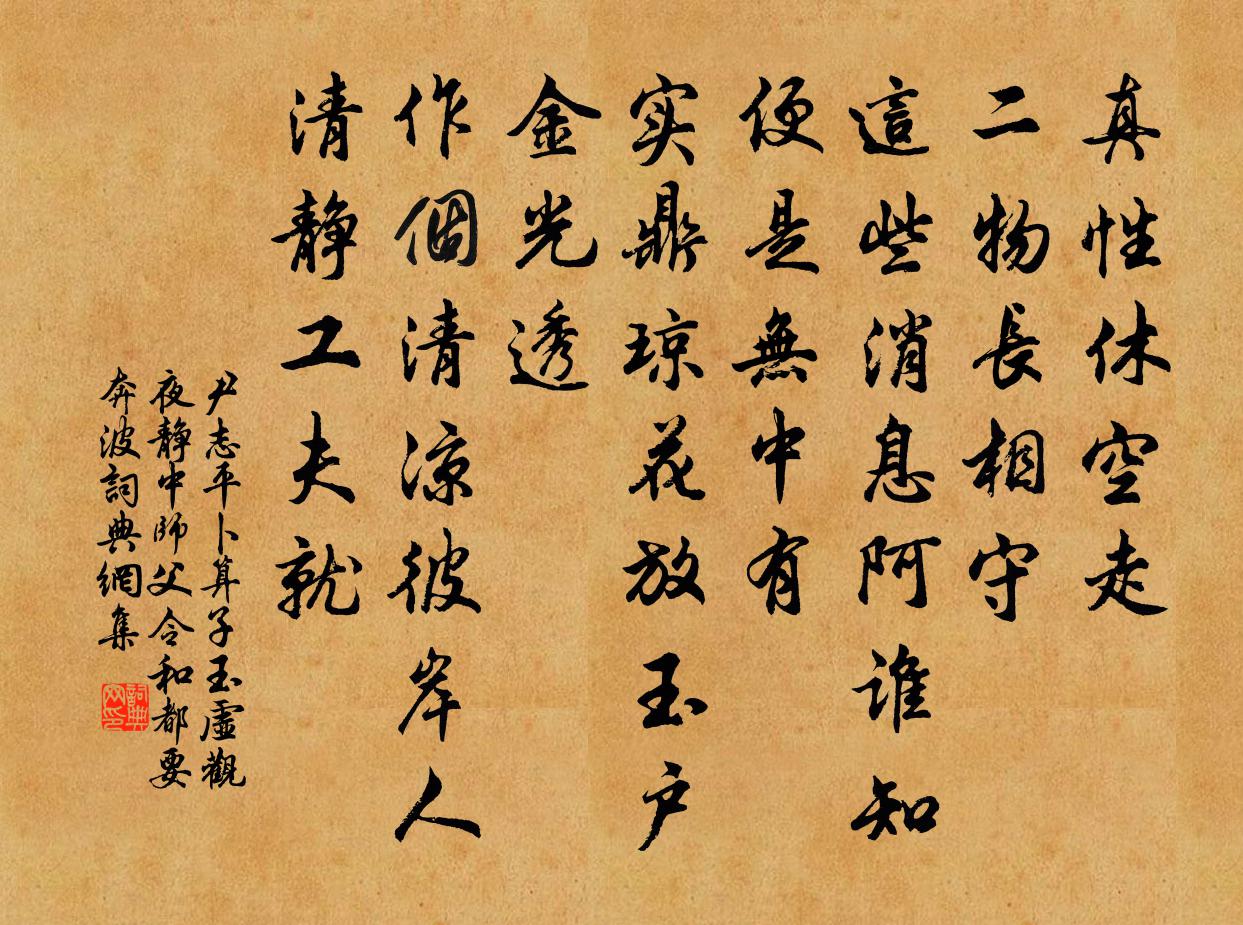 真性休空走
二物長相守
這些消息阿誰知
便是無中有
实鼎琼花放玉户
金光透
作個清凉彼岸人
清静工夫就
尹志平卜算子玉虚觀
夜静中師父令和都要
奔波詞典網集
詞典
网印